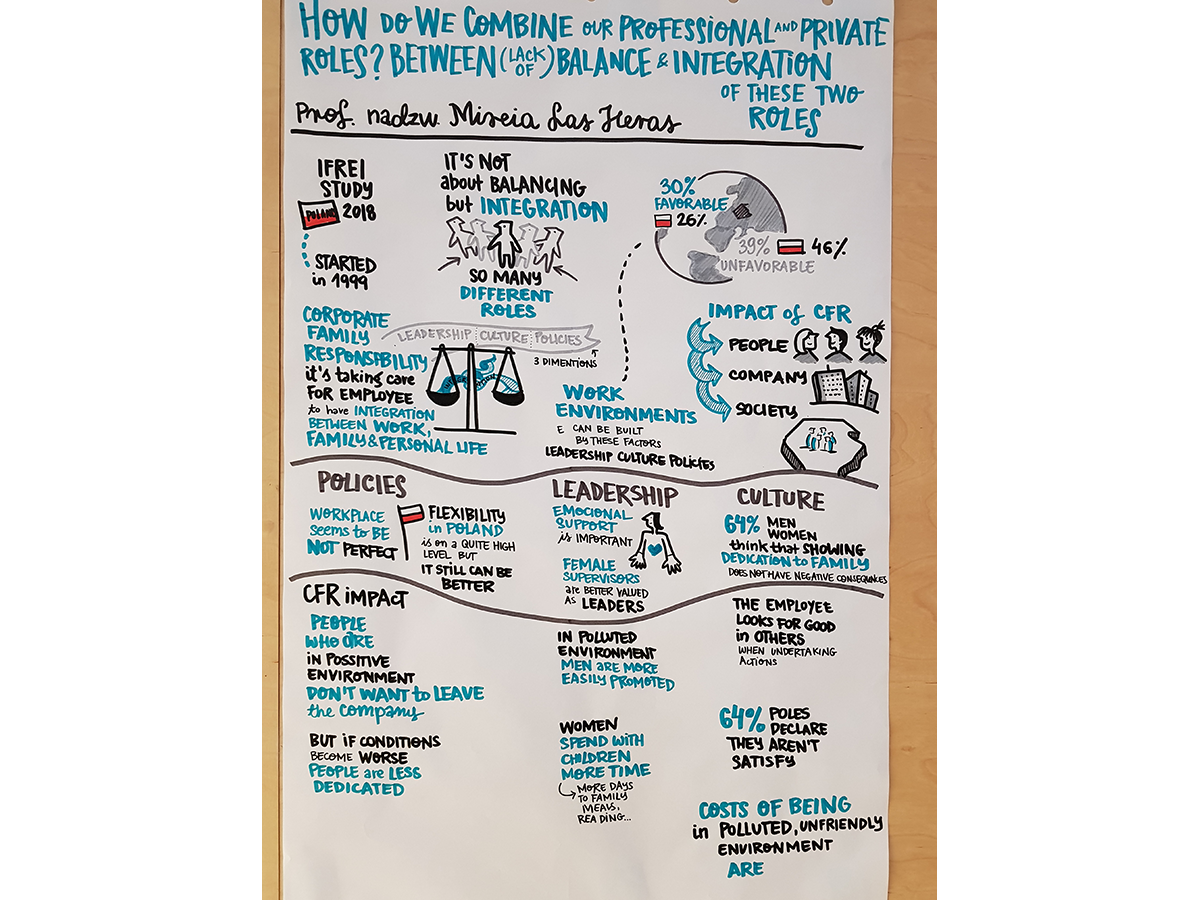 HOW DO WE COMBINE OUR PROFESSIONAL AND PRIVATE
ROLES? BETWEEN (LACK OF) BALANCE & INTEGRATION
OF THESE TWO
ROLES
Prof. nadzw. Mireia Las Heras
IFREI
STUDY
POLAND 2018
STARTED
in 1999
IT'S NOT
about BALANCING
but INTEGRATION
SO MANY
DIFFERENT
ROLES
30%
FAVORABLE
26%
39% 46%
UNFAVORABLE
CORPORATE
FAMILY
RESPONSIBILITY
it's taking care
FOR EMPLOYEE
to have INTEGRATION
BETWEEN WORK,
FAMILY & PERSONAL LIFE
LEADERSHIP CULTURE POLICIES
3 DIMENTIONS
WORK
ENVIRONMENTS
E CAN BE BUILT
BY THESE FACTORS
LEADERSHIP CULTURE POLICIES
IMPACT of CFR
PEOPLE
COMPANY
SOCIETY
POLICIES
WORKPLACE
seems to BE
NOT PERFECT
FLEXIBILITY
in POLAND
is on a QUITE HIGH
LEVEL BUT
IT STILL CAN BE
BETTER
LEADERSHIP
EMOCIONAL
SUPPORT
is IMPORTANT
FEMALE
SUPERVISORS
are BETTER VALUED
AS LEADERS
CULTURE
64% MEN
WOMEN
think that SHOWING
DEDICATION to FAMILY
DOES NOT HAVE NEGATIVE CONSEQUENCES
CFR iMPACT
PEOPLE
WHO ARE
IN POSSITIVE
ENVIRONMENT
DON'T WANT to LEAVE
the company
BUT IF CONDITIONS
BECOME WORSE
PEOPLE are LESS
DEDICATED
IN POLLUTED
ENVIRONMENT
MEN ARE MORE
EASILY PROMOTED
WOMEN
SPEND WITH
CHILDREN
MORE TIME
MORE DAYS
TO FAMILY
MEALS,
READING...
THE EMPLOYEE
LOOKS FOR GOOD
in OTHERS
WHEN UNDERTAKING
ACTIONS
64% POLES
DECLARE
THEY AREN'T
SATISFY
COSTS OF BEING
in POLLUTED, UNFRIENDLY
ENVIRONMENT
ARE